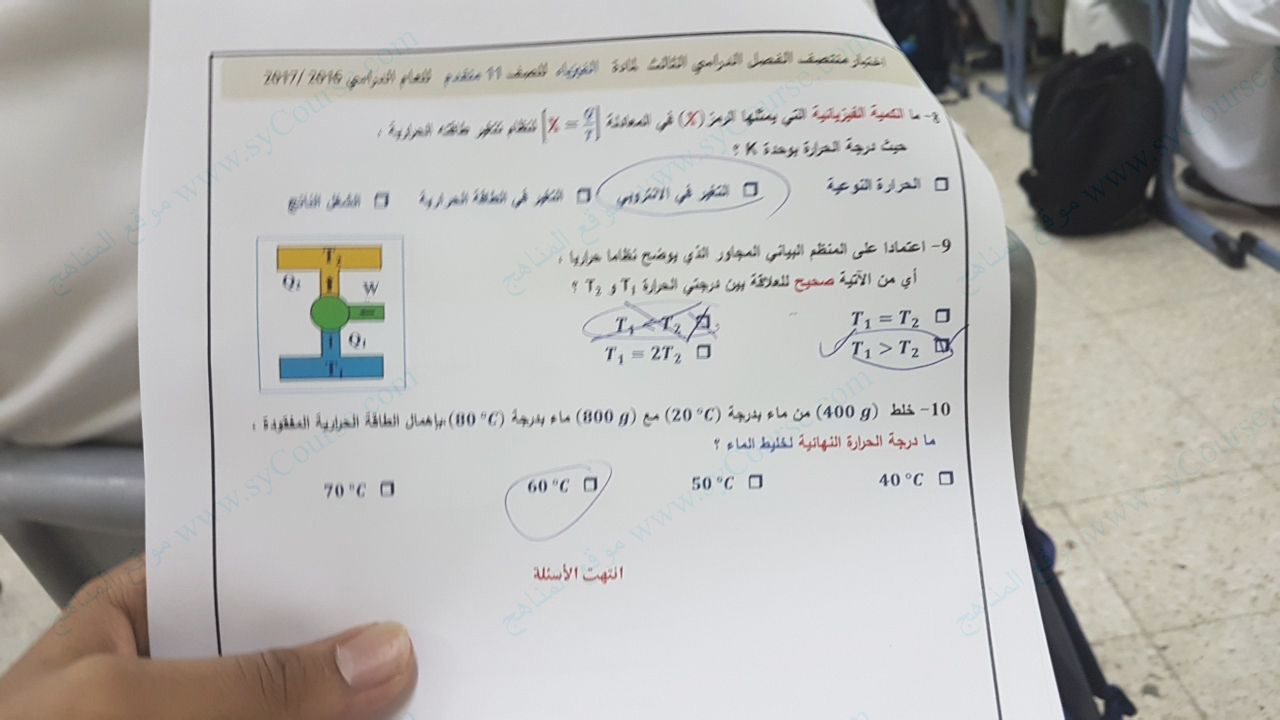 اختبار منتصف الفصل الدراسي الثالث لمادة الفيزياء للصف 11 متقدم للعام الدراسي 2016 /2017
8- ما الكمية الفيزيائية التي يمثلها الرمز (X) في المعادلة [X = Q/T] لنظام تتغير طاقته الحرارية ،
حيث درجة الحرارة بوحدة K ؟
❒ الحرارة النوعية ❒ التغير في الانتروبي ❒ التغير في الطاقة الحرارية ❒ الشغل الناتج
9- اعتمادا على المنظم البياني المجاور الذي يوضح نظاما حراريا ،
أي من الآتية صحيح للعلاقة بين درجتي الحرارة T1 و T2 ؟
❒ T1 = T2 ❒ T1 < T2
❒ T1 > T2 ❒ T1 = 2T2
T2
Q2 W
Q1
T1
10- خلط (400 g) من ماء بدرجة (20 °C) مع (800 g) ماء بدرجة (80 °C)،بإهمال الطاقة الحرارية المفقودة ؛
ما درجة الحرارة النهائية لخليط الماء ؟
❒ 40 °C ❒ 50 °C ❒ 60 °C ❒ 70 °C
انتهت الأسئلة
موقع المناهج www.syCourse.com